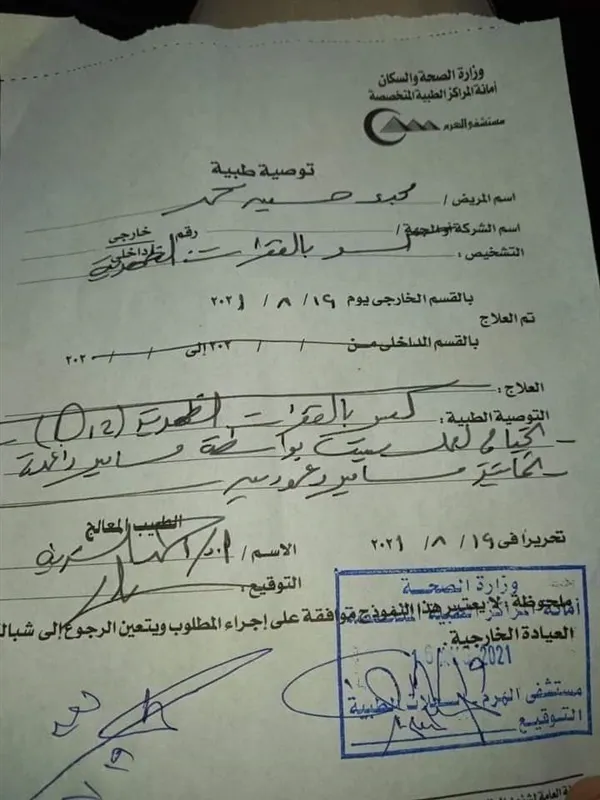 وزارة الصحة والسكان
أمانة المراكز الطبية المتخصصة
مستشفى الهرم
توصية طبية
اسم المريض / حسين محمد
اسم الشركة أو الجهة / رقم خارجى
داخلى
التشخيص : كسر بالفقرات الظهرية
بالقسم الخارجى يوم ١٩ / ٨ / ٢٠٢١
تم العلاج
بالقسم الداخلى من / / ٢٠٢ إلى / / ٢٠٢
العلاج :
التوصية الطبية : كسر بالفقرات الظهرية (D12)
- يحتاج لعملية تثبيت بواسطة مسامير وأعمدة
مسامير وعمودين
الطبيب المعالج
تحريراً فى ١٩ / ٨ / ٢٠٢١
الاسم / أ.د /
التوقيع :
ملحوظة : لا يعتبر هذا النموذج موافقة على إجراء المطلوب ويتعين الرجوع إلى شباك
العيادة الخارجية
وزارة الصحة
أمانة المراكز الطبية المتخصصة
2021
مستشفى الهرم - سجلات الطبية
التوقيع